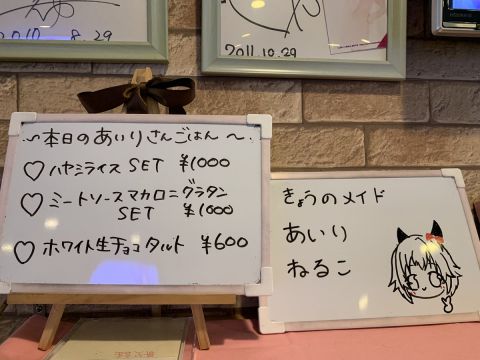 8.29
2011.10.29
〜本日のあいりさんごはん〜
♡ハヤシライス SET ¥1000
♡ミートソースマカロニグラタン
SET ¥1000
♡ホワイト生チョコタルト ¥600
きょうのメイド
あいり
ねるこ